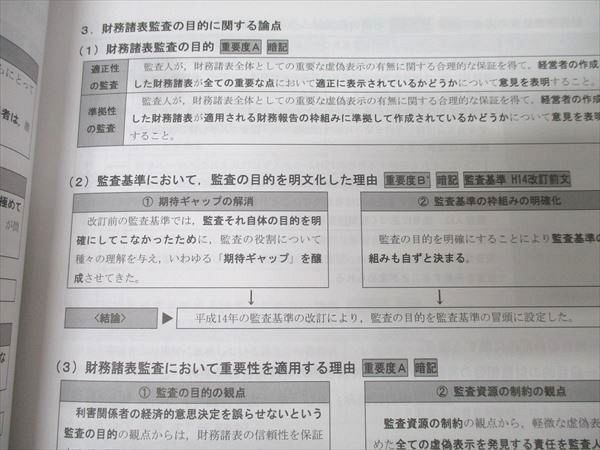 ３．財務諸表監査の目的に関する論点
（1）財務諸表監査の目的 重要度A 暗記
適正性の監査
監査人が，財務諸表全体としての重要な虚偽表示の有無に関する合理的な保証を得て，経営者の作成
した財務諸表が全ての重要な点において適正に表示されているかどうかについて意見を表明すること。
準拠性の監査
監査人が，財務諸表全体としての重要な虚偽表示の有無に関する合理的な保証を得て，経営者の作成
した財務諸表が適用される財務報告の枠組みに準拠して作成されているかどうかについて意見を表明
すること。
（2）監査基準において，監査の目的を明文化した理由 重要度B⁻ 暗記 監査基準 H14改訂前文
① 期待ギャップの解消
改訂前の監査基準では，監査それ自体の目的を明
確にしてこなかったために，監査の役割について
種々の理解を与え，いわゆる「期待ギャップ」を醸
成させてきた。
② 監査基準の枠組みの明確化
監査の目的を明確にすることにより監査基準の
組みも自ずと決まる。
〈結論〉
平成14年の監査基準の改訂により，監査の目的を監査基準の冒頭に設定した。
（3）財務諸表監査において重要性を適用する理由 重要度A 暗記
① 監査の目的の観点
利害関係者の経済的意思決定を誤らせないという
監査の目的の観点からは，財務諸表の信頼性を保証
② 監査資源の制約の観点
監査資源の制約の観点から，軽微な虚偽表
めた全ての虚偽表示を発見する責任を監査人
らにとって
者は，
極めて